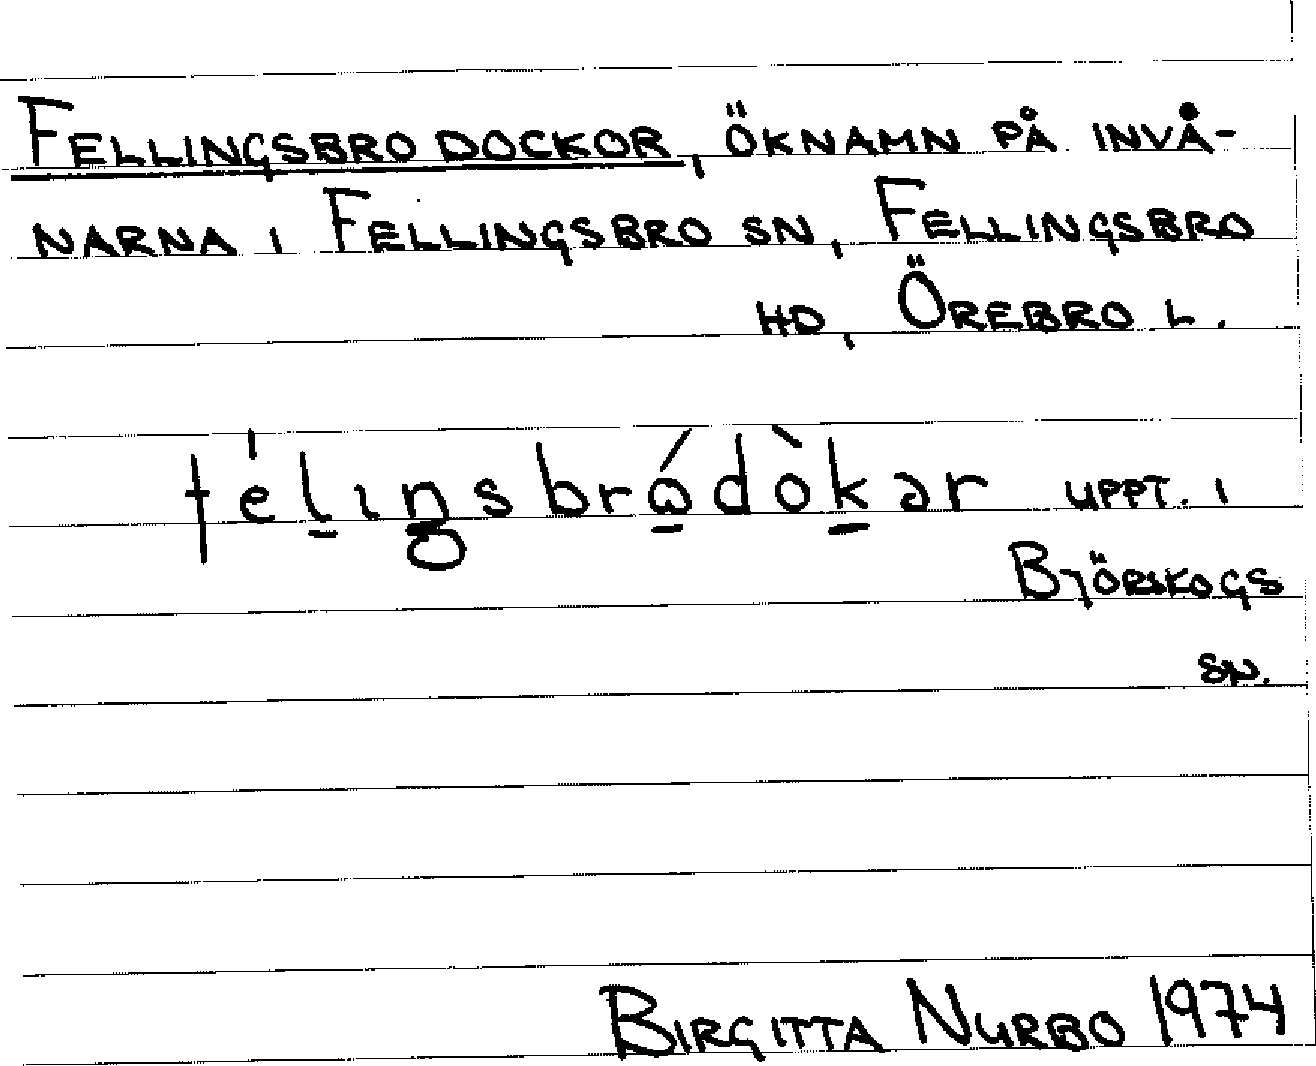 FELLINGSBRO DOCKOR, ÖKNAMN PÅ INVÅ-
NARNA I FELLINGSBRO SN, FELLINGSBRO
HD, ÖREBRO L.
UPPT. I
BJÖRSKOGS
SN.
BIRGITTA NURBO 1974